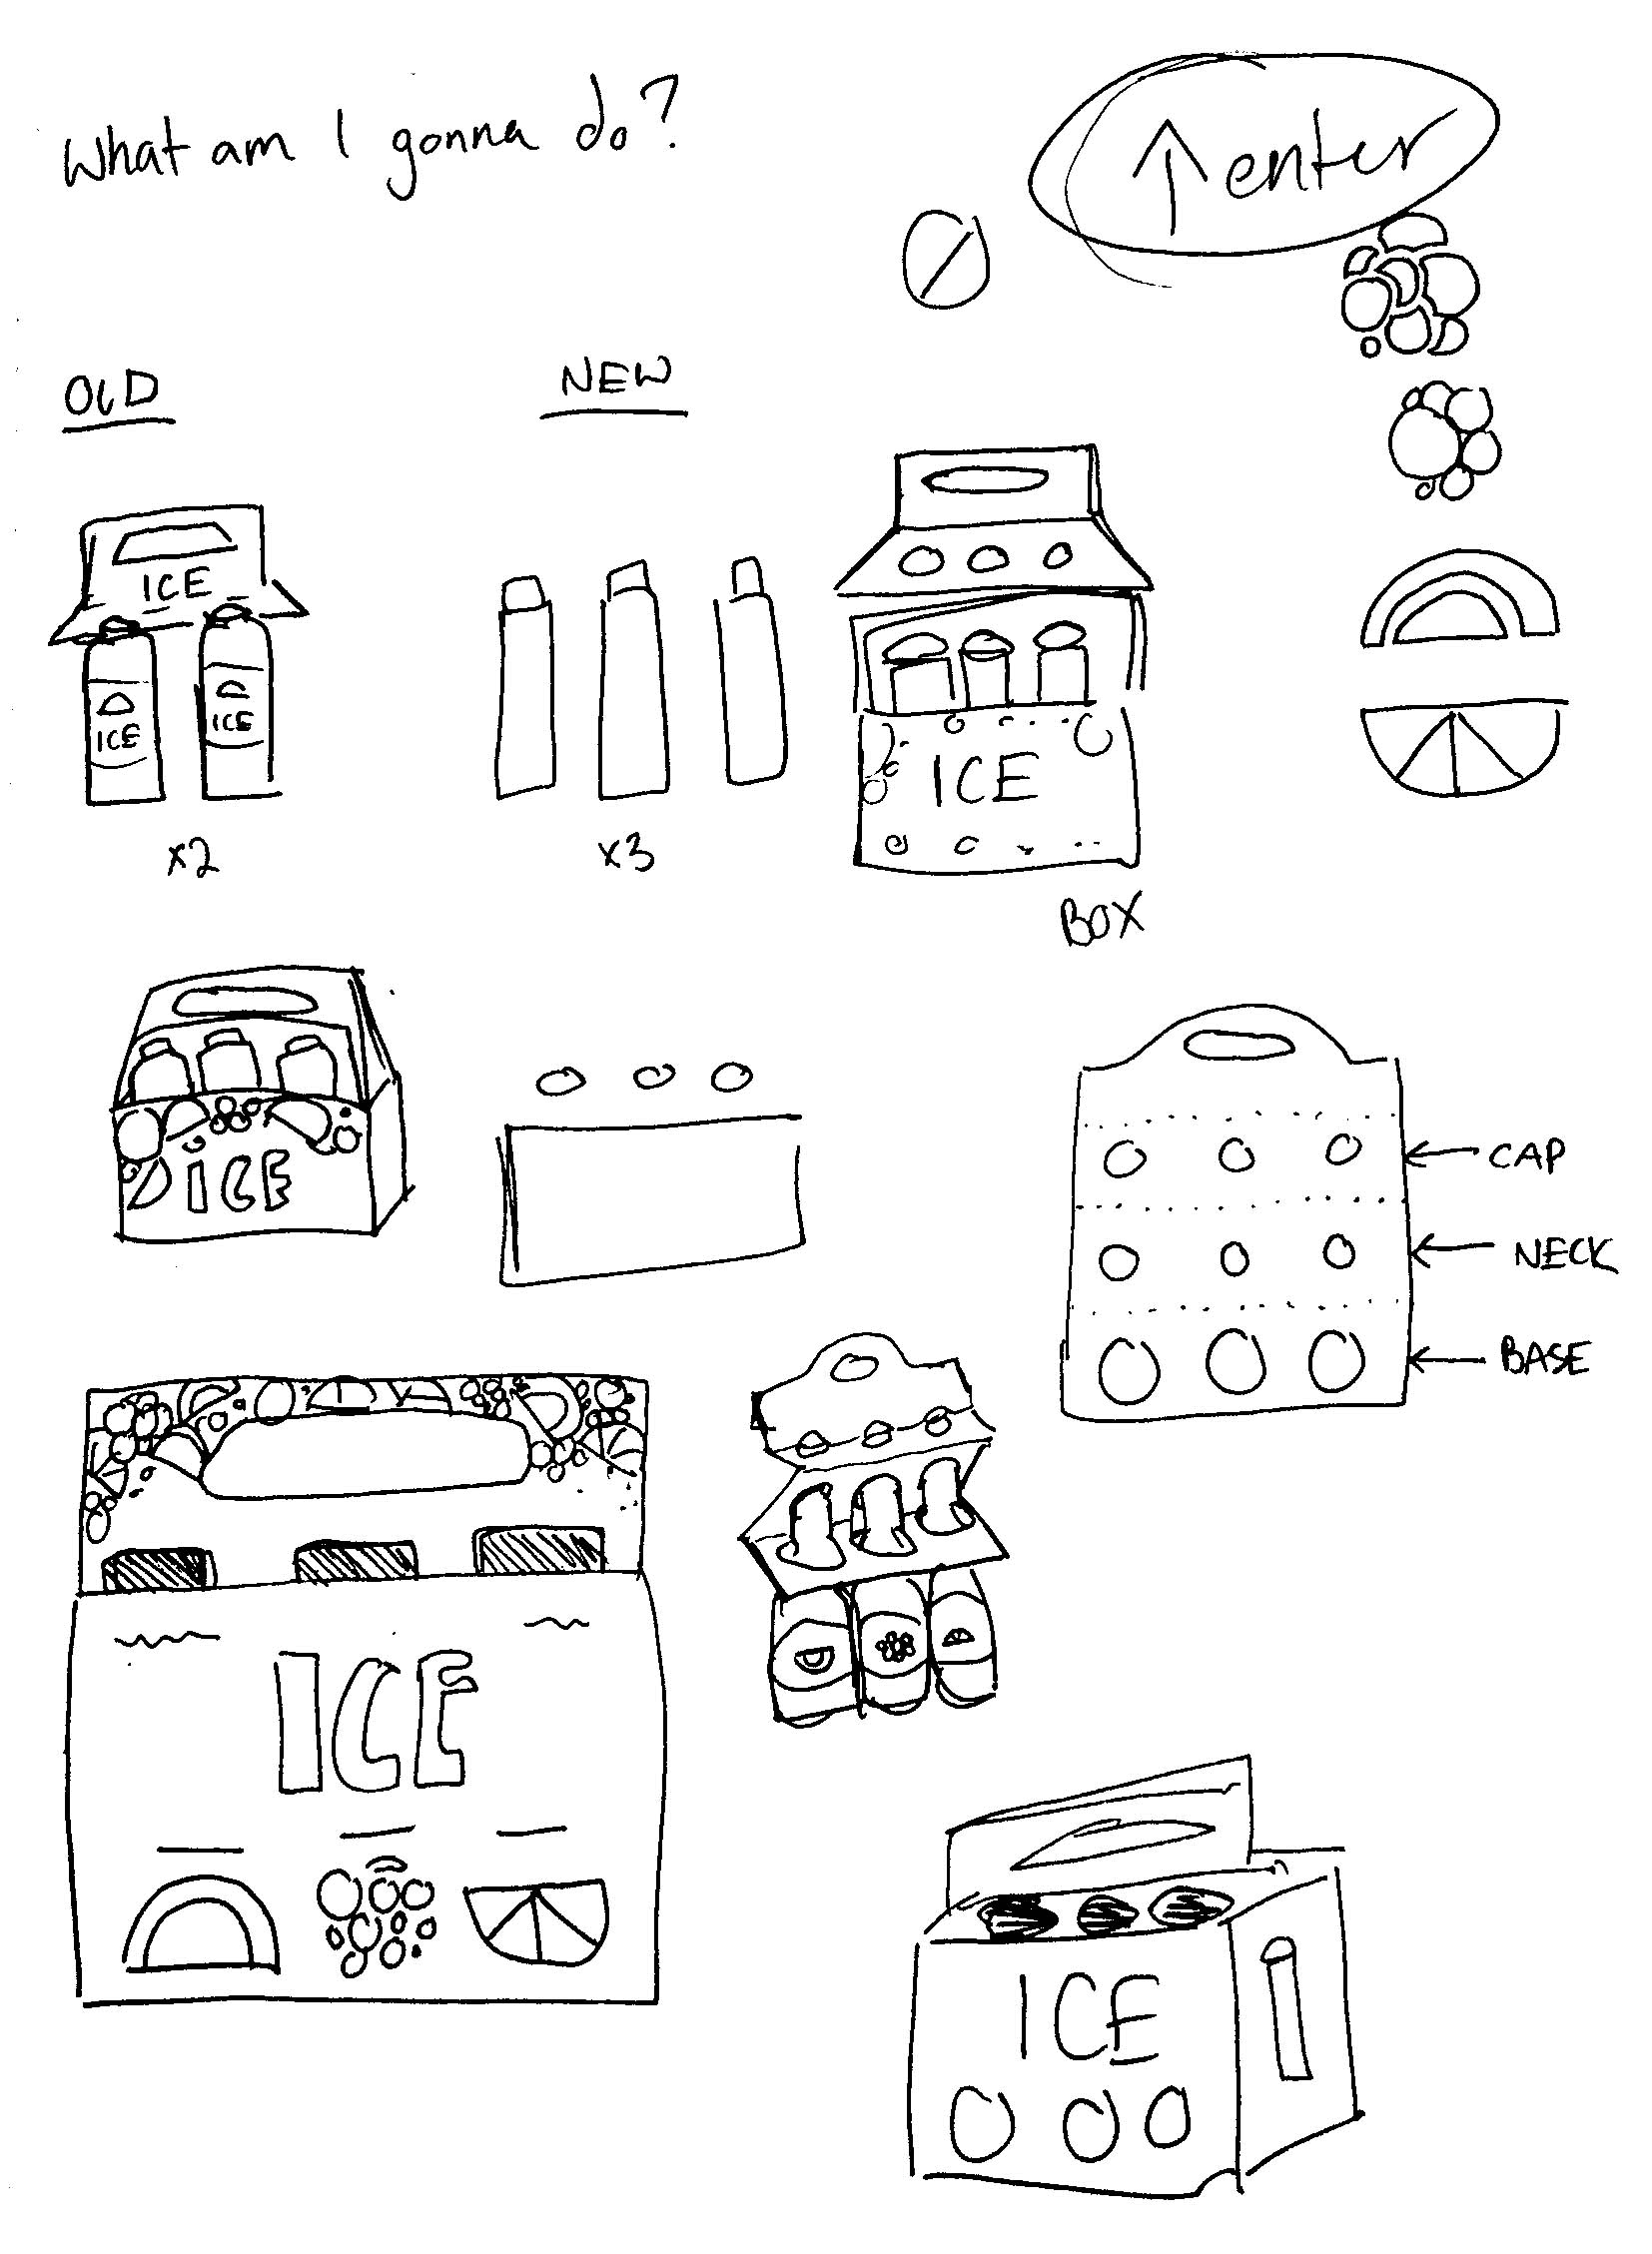 What am I gonna do?
↑ enter
OLD
NEW
ICE
ICE
ICE
x2
x3
ICE
BOX
ICE
CAP
NECK
BASE
ICE
ICE